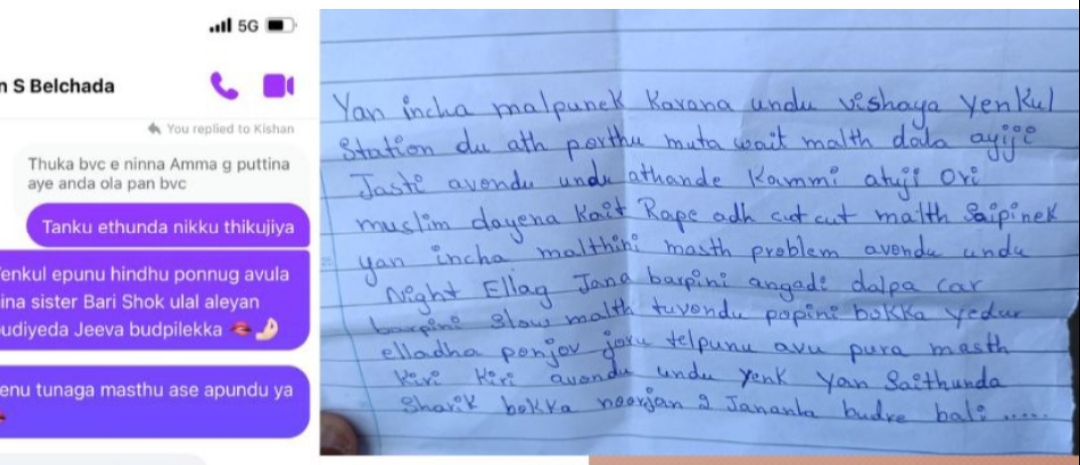 5G
n S Belchada
You replied to Kishan
Thuka bvc e ninna Amma g puttina
aye anda ola pan bvc
Tanku ethunda nikku thikujiya
enkul epunu hindhu ponnug avula
ina sister Bari Shok ulal aleyan
udiyeda Jeeva budpilekka
enu tunaga masthu ase apundu ya
Yan incha malpunek Karana undu vishaya yenkul
Station du ath porthu muta wait malth dala ayiji
Jasti avondu undu athande Kammi atuji Ori
muslim dayena Kait Rape adh cut cut malth Saipinek
yan incha malthini masth problem avondu undu
Night Ellag Jana barpini angadi dalpa car
barpini Slow malth tuvondu popini bokka yedur
elladha ponjov joru telpunu avu pura masth
Kiri Kiri avondu undu yenk yan Saithunda
Sharik bokka noorjan 2 Jananla budre bali .....